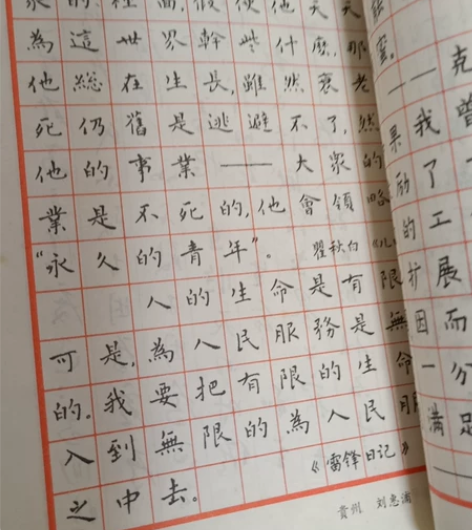 為這世界幹些什麼，那
他總在生長，雖然衰老
死仍舊是逃避不了，然
他的事業——大眾的
業是不死的，他會領略
“永久的青年”。 瞿秋白
人的生命是有限
可是，為人民服務是無
的。我要把有限的生命
入到無限的為人民服
之中去。 《雷锋日记》
贵州 刘惠浦
克
曾
我
了
的工
扩展
因而
一分
满足